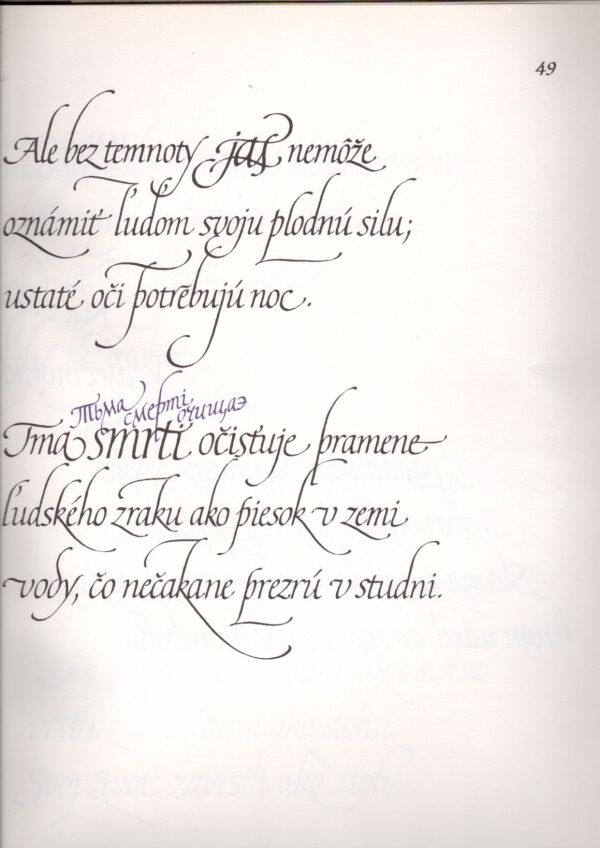 49
Ale bez temnoty jas nemôže
oznámiť ľuďom svoju plodnú silu;
ustaté oči potrěbujú noc.
Тьма смерті очищаэ
Tma smrti očisťuje pramene
ľudského zraku ako piesok v zemi
vody, čo nečakane prezrú v studni.